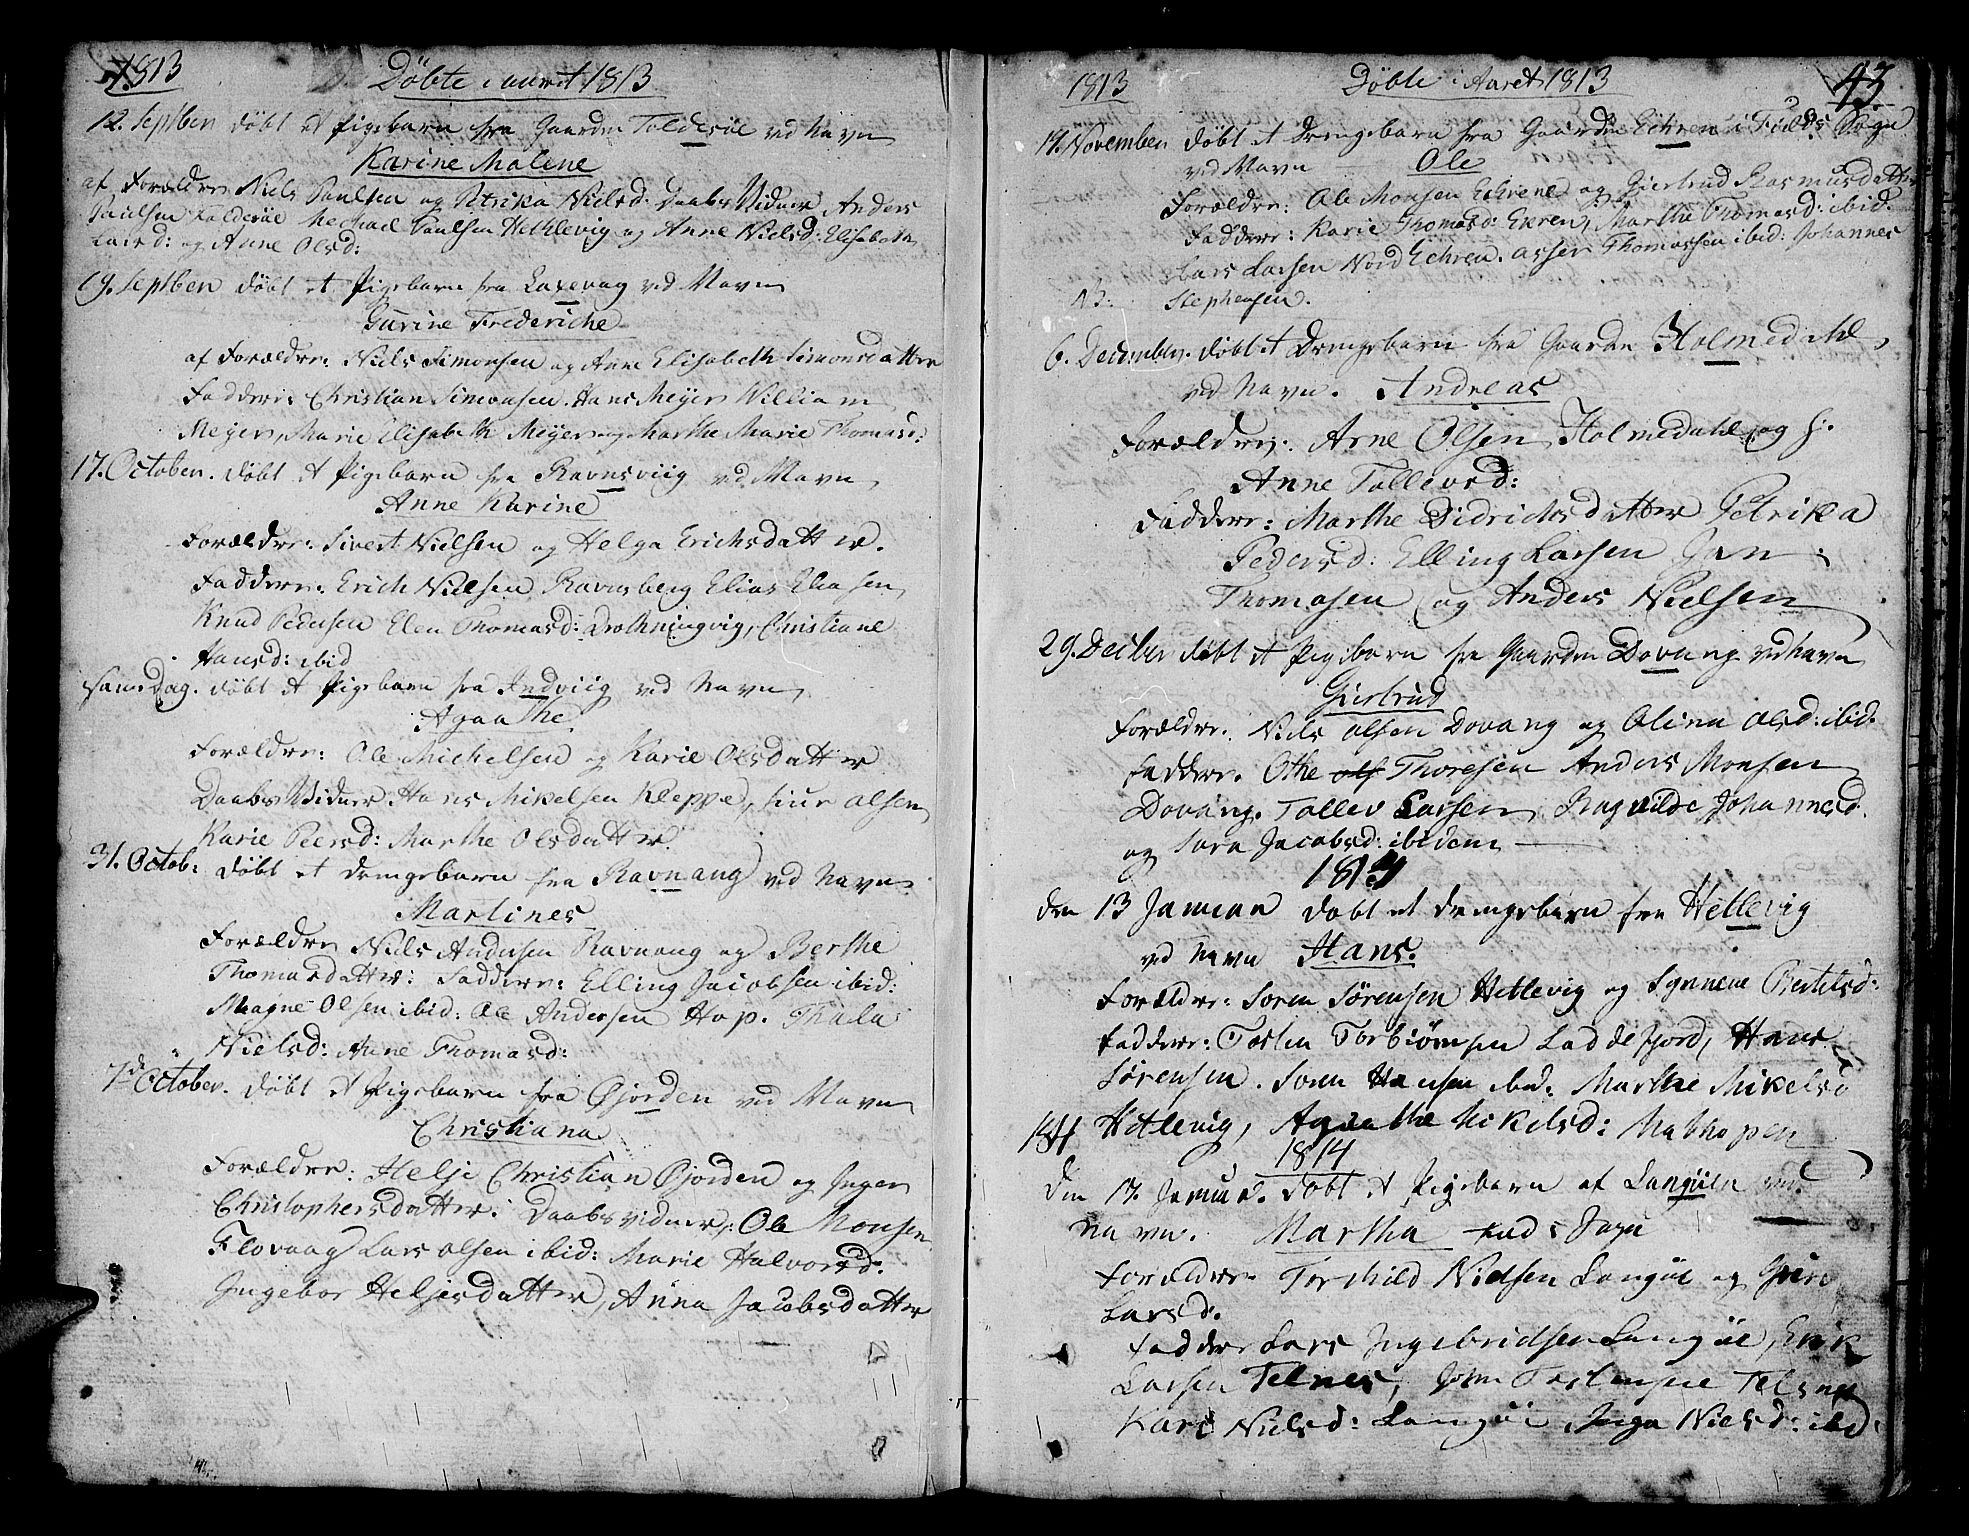 1813 Döbte i aaret 1813
12. Septben döbt et Pigebarn fra Gaarden Tolderöe ved Navn
Karine Malene
af Forældre Niels Paulsen og Petrika Nielsd: Daabs Vidner Anders
Paulsen Tolderöe Mechael Paulsen Hetlevig og Anne Nielsd: Elisabeth
Larsd: og Anne Olsd:
19. Septben döbt et Pigebarn fra Laxevaag ved Navn
Gurine Frederiche
af Forældre: Niels Simonsen og Anne Elisabeth Simonsdatter
Faddere: Christian Simonsen. Hans Meyer William
Meyer, Marie Elisabeth Meyer og Marthe Marie Thomasd:
17. October. döbt et Pigebarn fra Ravnsviig ved Navn
Anne Karine
Forældre: Sivert Nielsen og Helga Erichsdatter.
Faddere: Erich Nielsen Ravnsberg Elias Eliasen
Knud Pedersen Elen Thomasd: Drothningvig, Christiane
Hansd: ibid
samedag. döbt et Pigebarn fra Indviig ved Navn
Agaathe
Forældre: Ole Michelsen og Karie Olsdatter
Daabs Vidner Hans Mikelsen Kleppe, siur olsen
Karie Peersd: Marthe Olsdatter
31. Octob: döbt et drengebarn fra Ravnang ved Navn
Martines
Forældre Niels Andersen Ravnang og Berthe
Thomasdatter: Faddere: Elling Jacobsen ibid:
Magne Olsen ibid: Ole Andersen Hop. Thala
Nielsd: Anne Thomasd:
7de October. döbt et Pigebarn fra Øjorden ved Navn
Christiana
Forældre: Helje Christian Øjorden og Inger
Christophersdatter: Daabsvidner: Ole Monsen
Flovaag Lars olsen ibid: Marie Halvorsd:
Ingebor Heljesdatter, Anna Jacobsdatter
1813 Döbte i Aaret 1813 43
19. November döbt et Drengebarn fra Gaarden Echren i Fields Sogn
ved Navn Ole
Forældre: Ole Monsen Echrene og Giertrud Rasmusdatter
Faddere: Karie Thomasd: Exeren, Marthe Thomasd: ibid.
Lars Larsen Nord Echren. asser Thomassen ibid: Johannes
Stephensen.
6. December. döbt et Drengebarn fra Gaarden Holmedahl
ved Navn. Andreas
Forældre: Arne Olsen Holmedahl og h.
Anne Tollevsd:
Faddere: Marthe Didrichsdatter Petrika
Pedersd: Elling Larsen Jan
Thomasen og Anders Nielsen
29. Decber döbt et Pigebarn fra Gaarden Dovang ved navn
Giertrud
Forældre: Niels olsen Dovang og Olina Olsd: ibid.
Faddere. Othe ols Thoresen Anders Monsen
Dovang. Tollev Larsen, Ragnilde Johannesd.
og Sara Jacobsd: ibidem
1814
den 13 Januar döbt et drengebarn fra Hetlevig
ved Navn Hans.
Forældre: Soren Sörensen Hetlevig og Synneve Bertelsd:
Faddere: Tosten Torbiörnsen Laddefjord, Hans
Sörensen. Soren Hansen ibid: Marthe Mikelsd
Hetlevig, Agaathe Mikelsd: Mathopen
1814 1814
den 17. Januar. döbt et Pigebarn af Langöen ved
navn. Martha
Forældre Torchild Nielsen Langöe og Guri
Larsd:
Faddere Lars Ingebridsen Langöe, Erik
Larsen Telnes, John Tostensen Telnes
Kari Nielsd: Langöe Inga Nielsd: ibid: